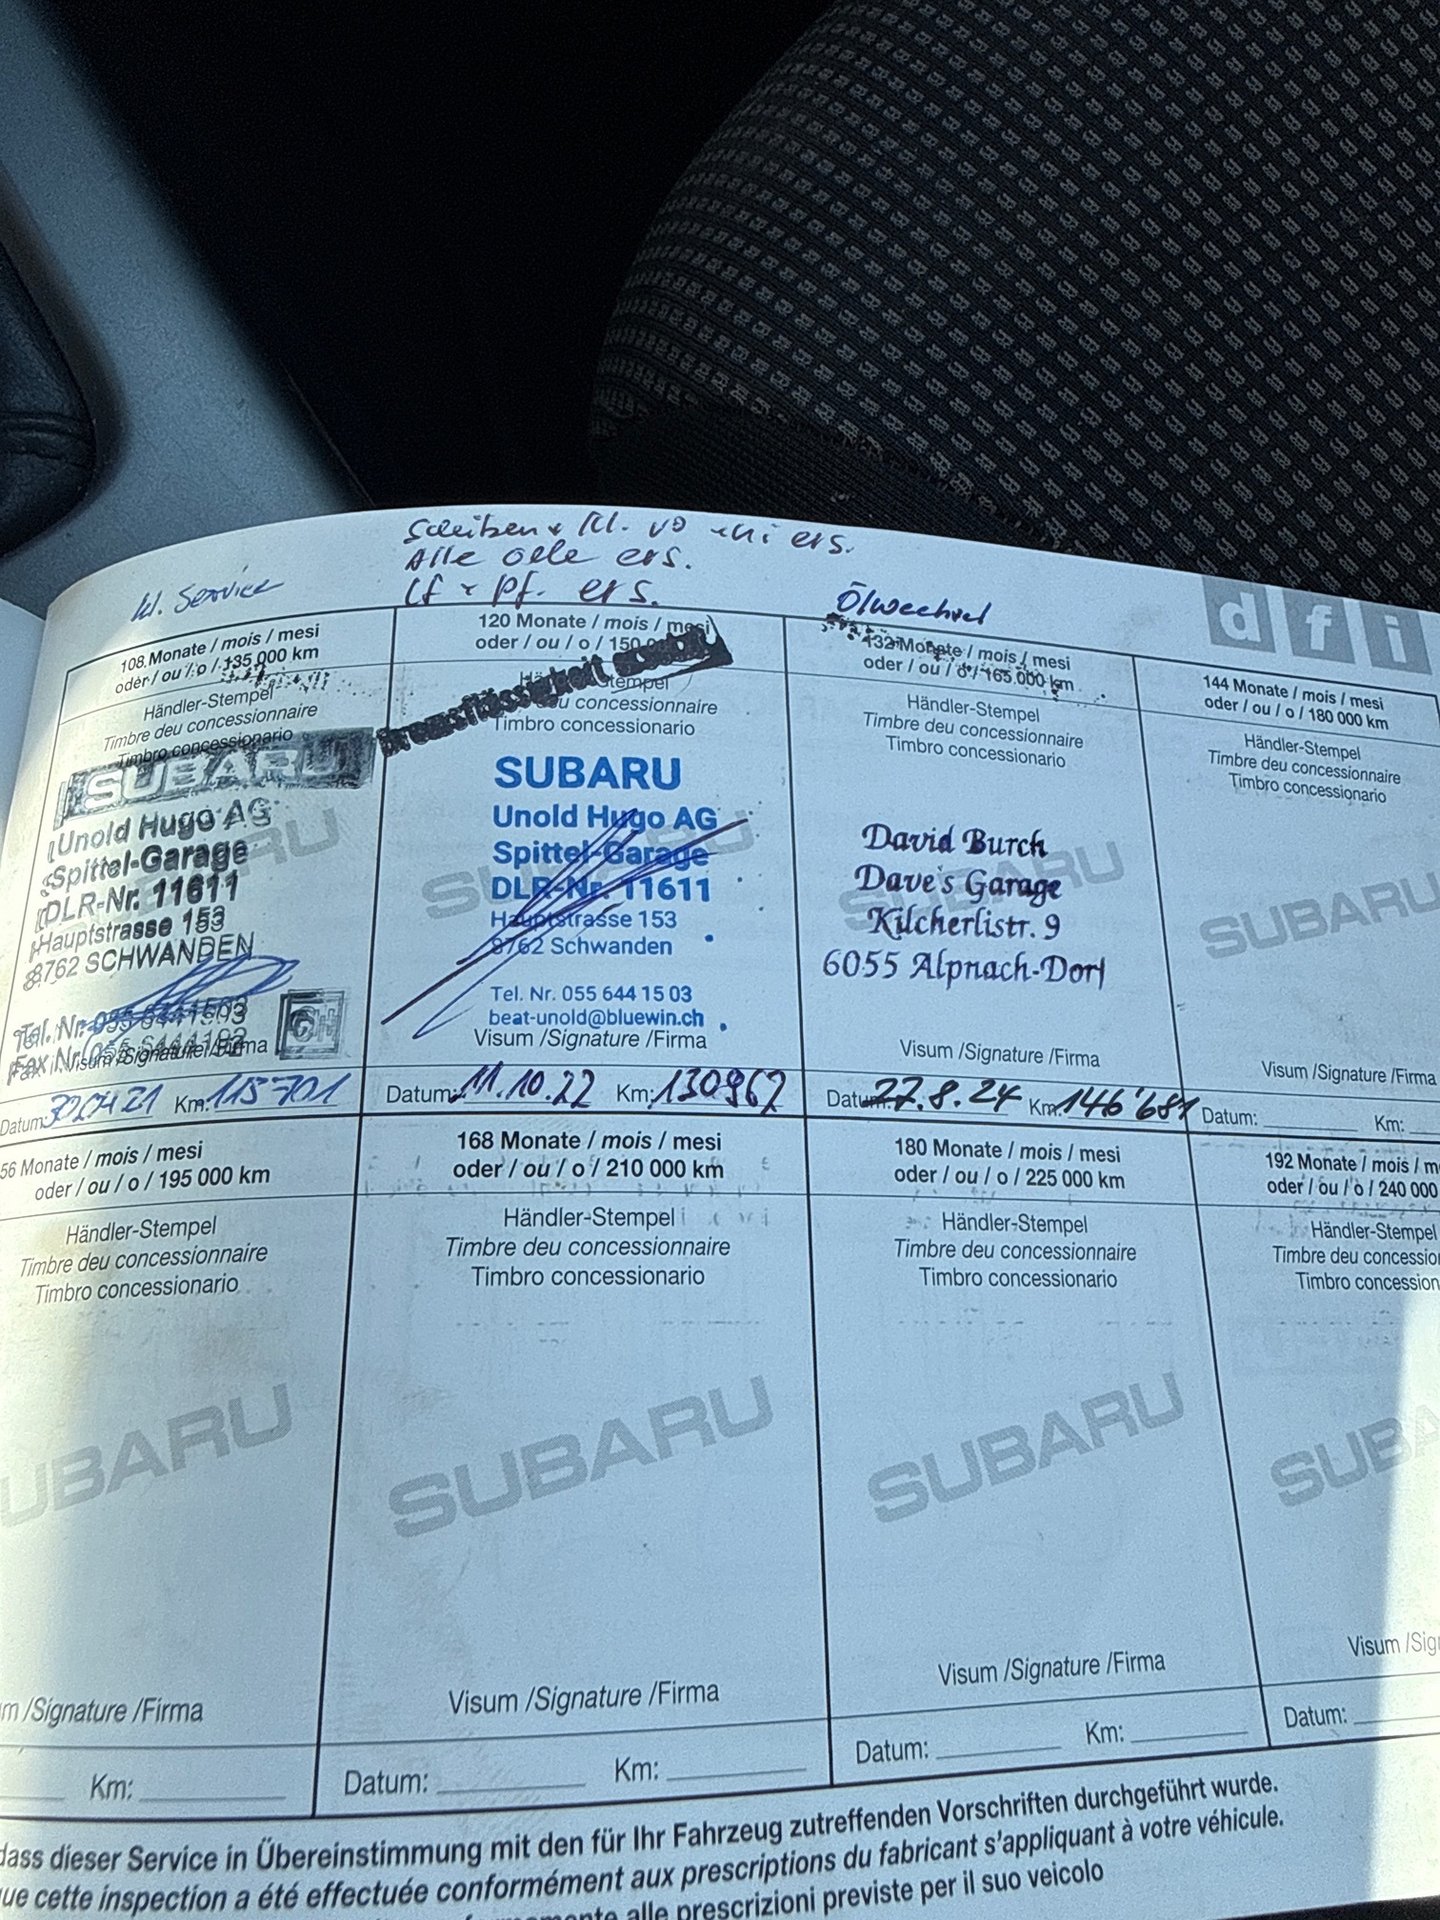 Scheiben + Kl. vo + hi ers.
Alle Oele ers.
Lf + Pf. ers.
kl. Service
Ölwechsel
dfi
108 Monate / mois / mesi
oder / ou / o / 135 000 km
Händler-Stempel
Timbre deu concessionnaire
Timbro concessionario
SUBARU
Unold Hugo AG
Spittel-Garage
DLR-Nr. 11611
Hauptstrasse 153
8762 SCHWANDEN
Tel. Nr. 055 6441503
Fax Nr. 055 6444192
Visum /Signature /Firma
Datum: 30.04.21 Km: 115 701
120 Monate / mois / mesi
oder / ou / o / 150
Bremsflüssigkeit ersetzt
Händler-Stempel
concessionnaire
Timbro concessionario
SUBARU
Unold Hugo AG
Spittel-Garage
DLR-Nr. 11611
Hauptstrasse 153
8762 Schwanden
Tel. Nr. 055 644 15 03
beat-unold@bluewin.ch
Visum /Signature /Firma
Datum: 11.10.22 Km: 130962
132 Monate / mois / mesi
oder / ou / o / 165.000 km
Händler-Stempel
Timbre deu concessionnaire
Timbro concessionario
SUBARU
David Burch
Dave's Garage
Kilcherlistr. 9
6055 Alpnach-Dorf
Visum /Signature /Firma
Datum: 27.8.24 Km: 146'681
144 Monate / mois / mesi
oder / ou / o / 180 000 km
Händler-Stempel
Timbre deu concessionnaire
Timbro concessionario
SUBARU
Visum /Signature /Firma
Datum: Km:
56 Monate / mois / mesi
oder / ou / o / 195 000 km
Händler-Stempel
Timbre deu concessionnaire
Timbro concessionario
UBARU
m /Signature /Firma
Km:
168 Monate / mois / mesi
oder / ou / o / 210 000 km
Händler-Stempel
Timbre deu concessionnaire
Timbro concessionario
SUBARU
Visum /Signature /Firma
Datum: Km:
180 Monate / mois / mesi
oder / ou / o / 225 000 km
Händler-Stempel
Timbre deu concessionnaire
Timbro concessionario
SUBARU
Visum /Signature /Firma
Datum: Km:
192 Monate / mois / m
oder / ou / o / 240 000
Händler-Stempel
Timbre deu concessio
Timbro concession
SUBA
Visum /Sig
Datum:
dass dieser Service in Übereinstimmung mit den für Ihr Fahrzeug zutreffenden Vorschriften durchgeführt wurde.
ue cette inspection a été effectuée conformément aux prescriptions du fabricant s'appliquant à votre véhicule.
alle prescrizioni previste per il suo veicolo